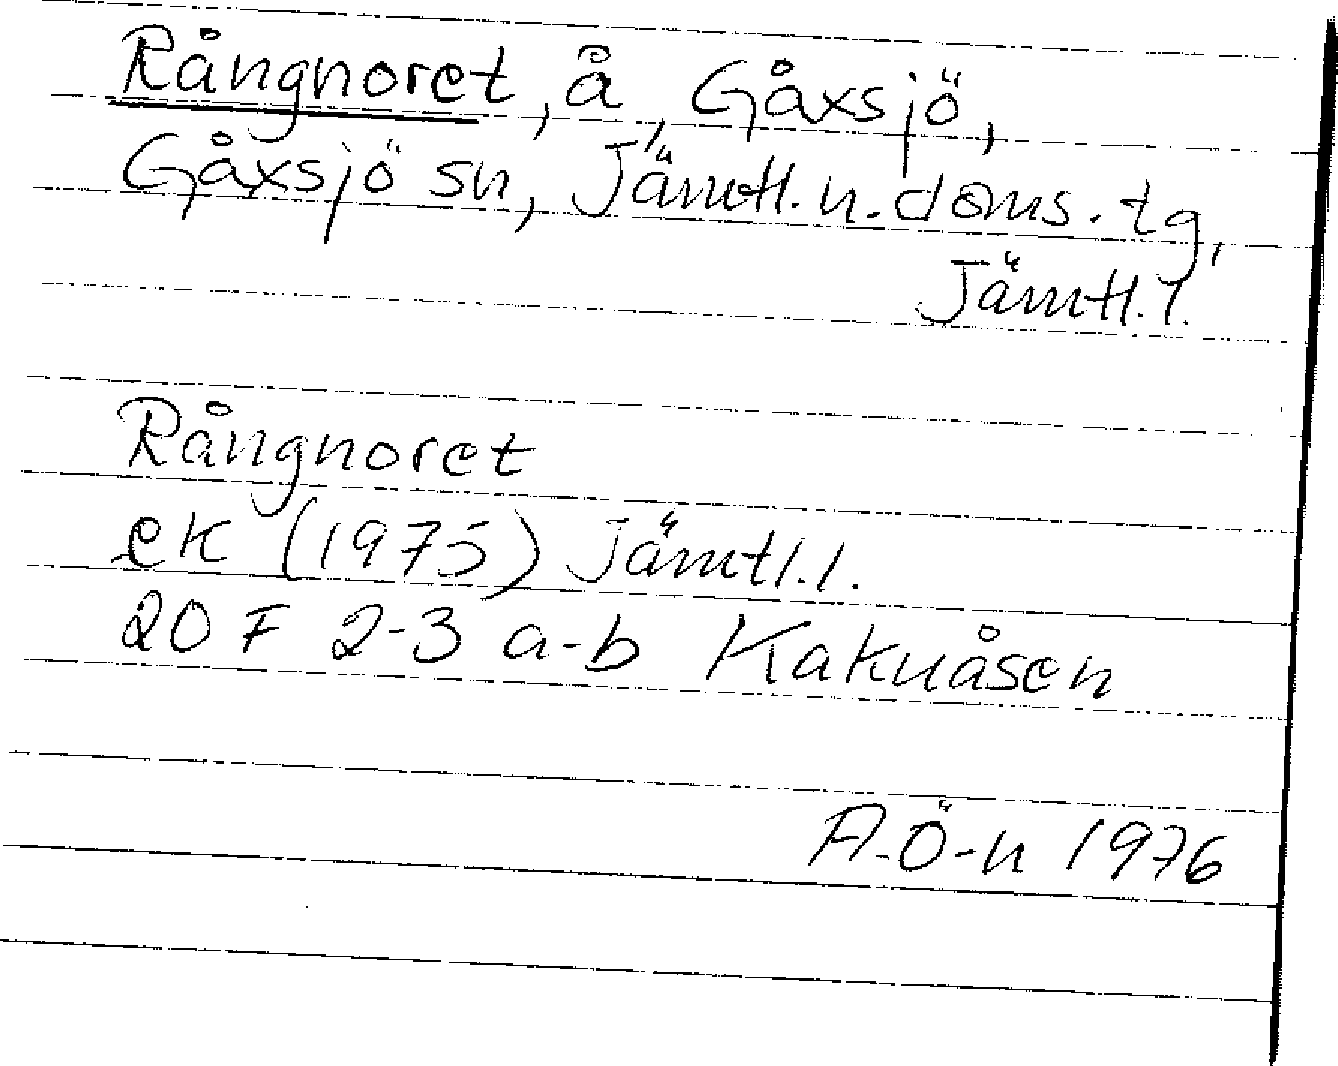 Rångnoret, å, Gåxsjö,
Gåxsjö sn, Jämtl. n. doms. tg,
Jämtl. l.
Rångnoret
ek (1975) Jämtl. l.
20 F 2-3 a-b Kakuåsen
A.Ö-n 1976